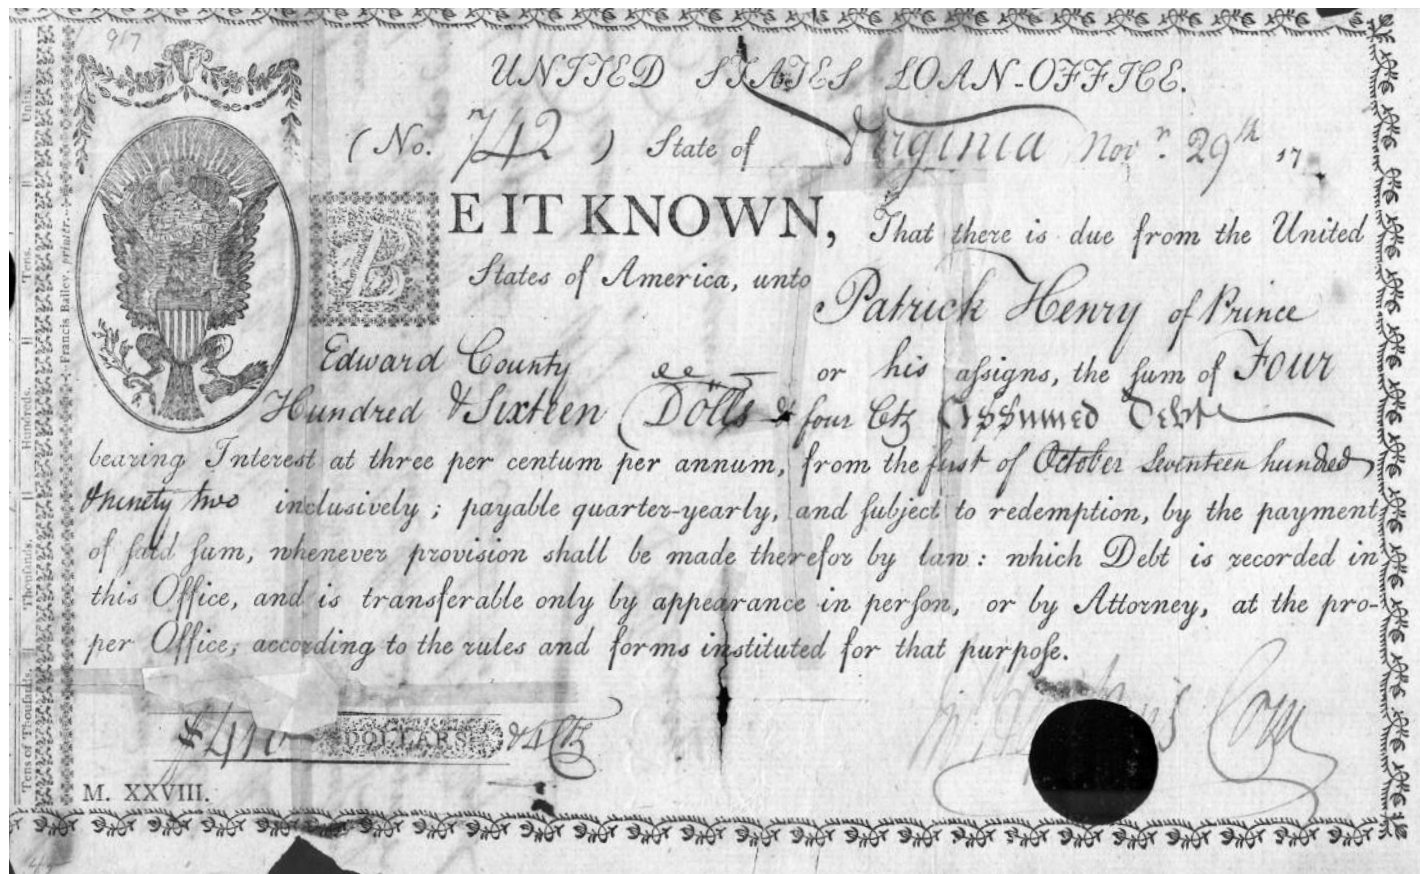 917
UNITED STATES LOAN-OFFICE.
(No. 742) State of Virginia Novr. 29th 17
BE IT KNOWN, That there is due from the United
States of America, unto Patrick Henry of Prince
Edward County or his aſsigns, the ſum of Four
Hundred & Sixteen Dolls & four Cts Assumed Debt
bearing Interest at three per centum per annum, from the first of October Seventeen hundred
& ninety two incluſively; payable quarter-yearly, and ſubject to redemption, by the payment
of ſaid ſum, whenever proviſion shall be made therefor by law: which Debt is recorded in
this Office, and is tranſferable only by appearance in perſon, or by Attorney, at the pro-
per Office, according to the rules and forms instituted for that purpoſe.
$416 DOLLARS & 4 Cts
Com
M. XXVIII.
Units.
Tens.
Hundreds.
Thouſands.
Tens of Thouſands.
Francis Bailey, printer.